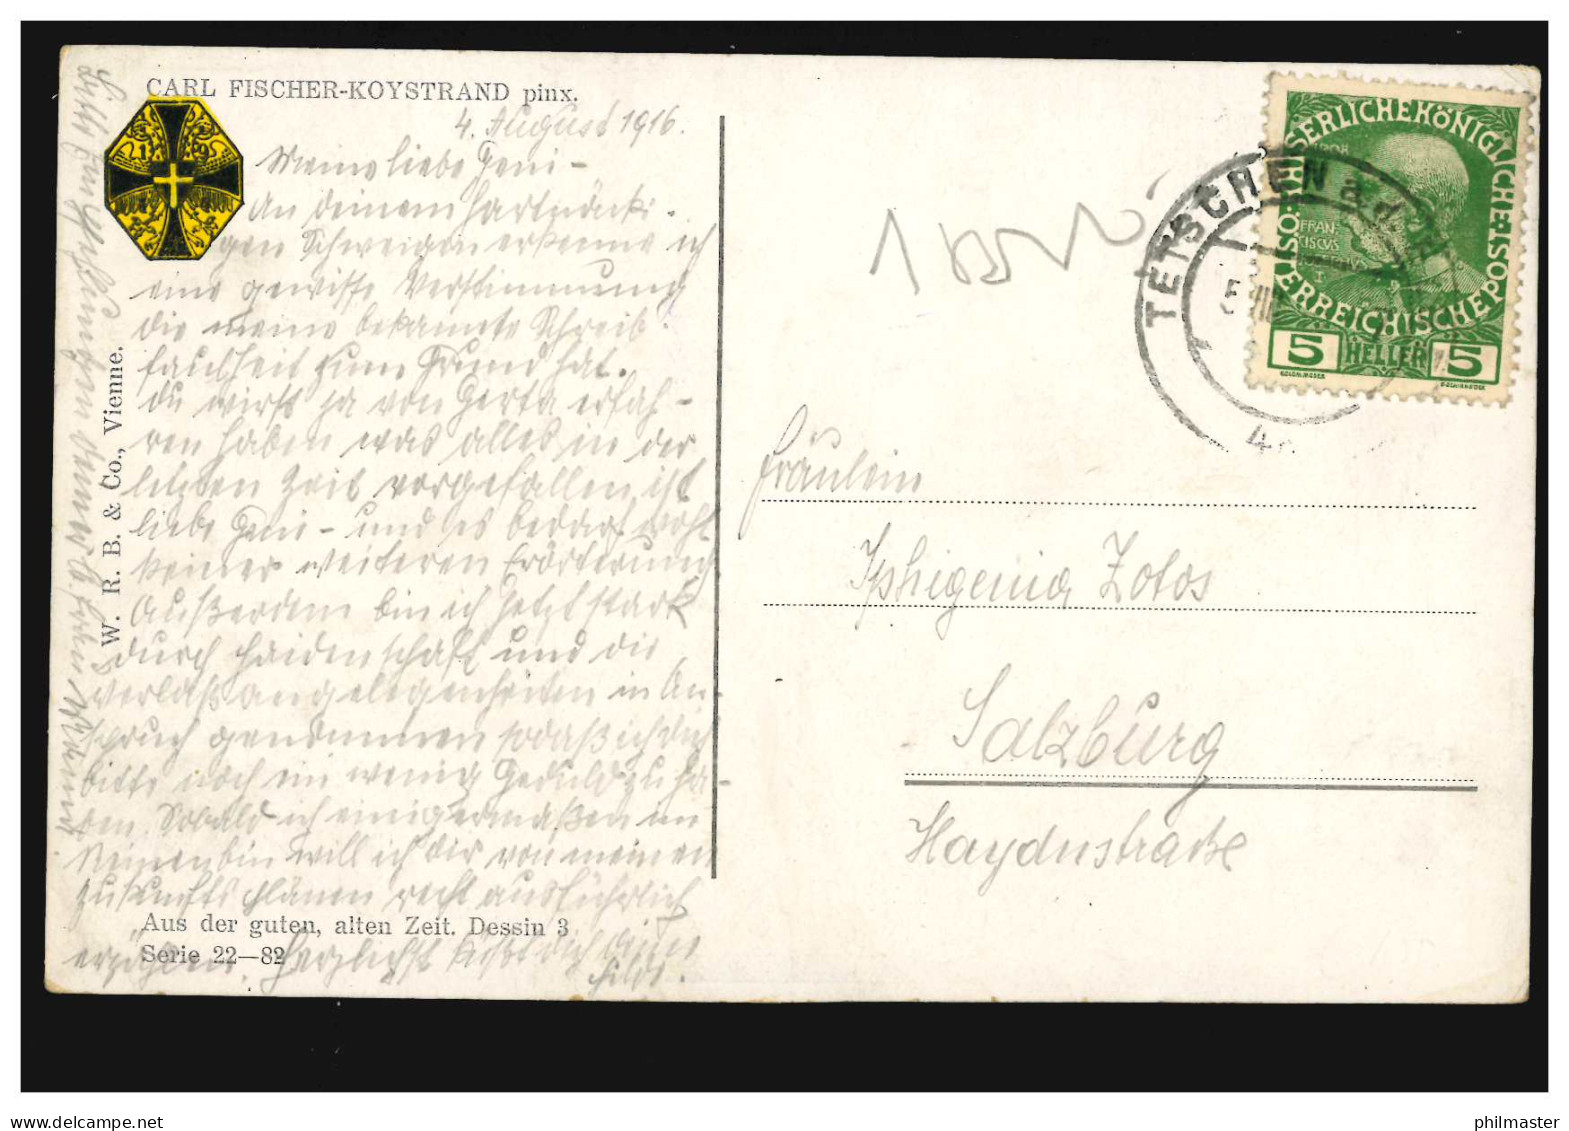 CARL FISCHER-KOYSTRAND pinx.
4. August 1916.
Meine liebe Geni -
An deinem hartnäcki-
gen Schweigen erkenne ich
eine gewisse Verstimmung
die meine bekannte Schreib-
faulheit zum Grund hat.
Du wirst ja von Gerta erfah-
ren haben was alles in der
letzten Zeit vorgefallen ist
liebe Geni - und es bedarf wohl
keiner weiteren Erörterung.
Außerdem bin ich jetzt stark
durch und die
Verlaßangelegenheiten in An-
spruch genommen sodaß ich dich
bitte noch ein wenig Geduld zu ha-
ben. Sobald ich einigermaßen im
Reinen bin will ich dir von meinen
Zukunftsplänen recht ausführlich
erzählen. Herzlichst küßt dich deine
Hilde.
Aus der guten, alten Zeit. Dessin 3
Serie 22—82
W. R. B. & Co., Vienne.
TETSCHEN a.d.
KAISERLICHE KÖNIGLICHE
ÖSTERREICHISCHE POST
1908
FRAN
CISCVS
I
5 HELLER 5
Fräulein
Iphigenia Zotos
Salzburg
Haydnstraße
philmaster